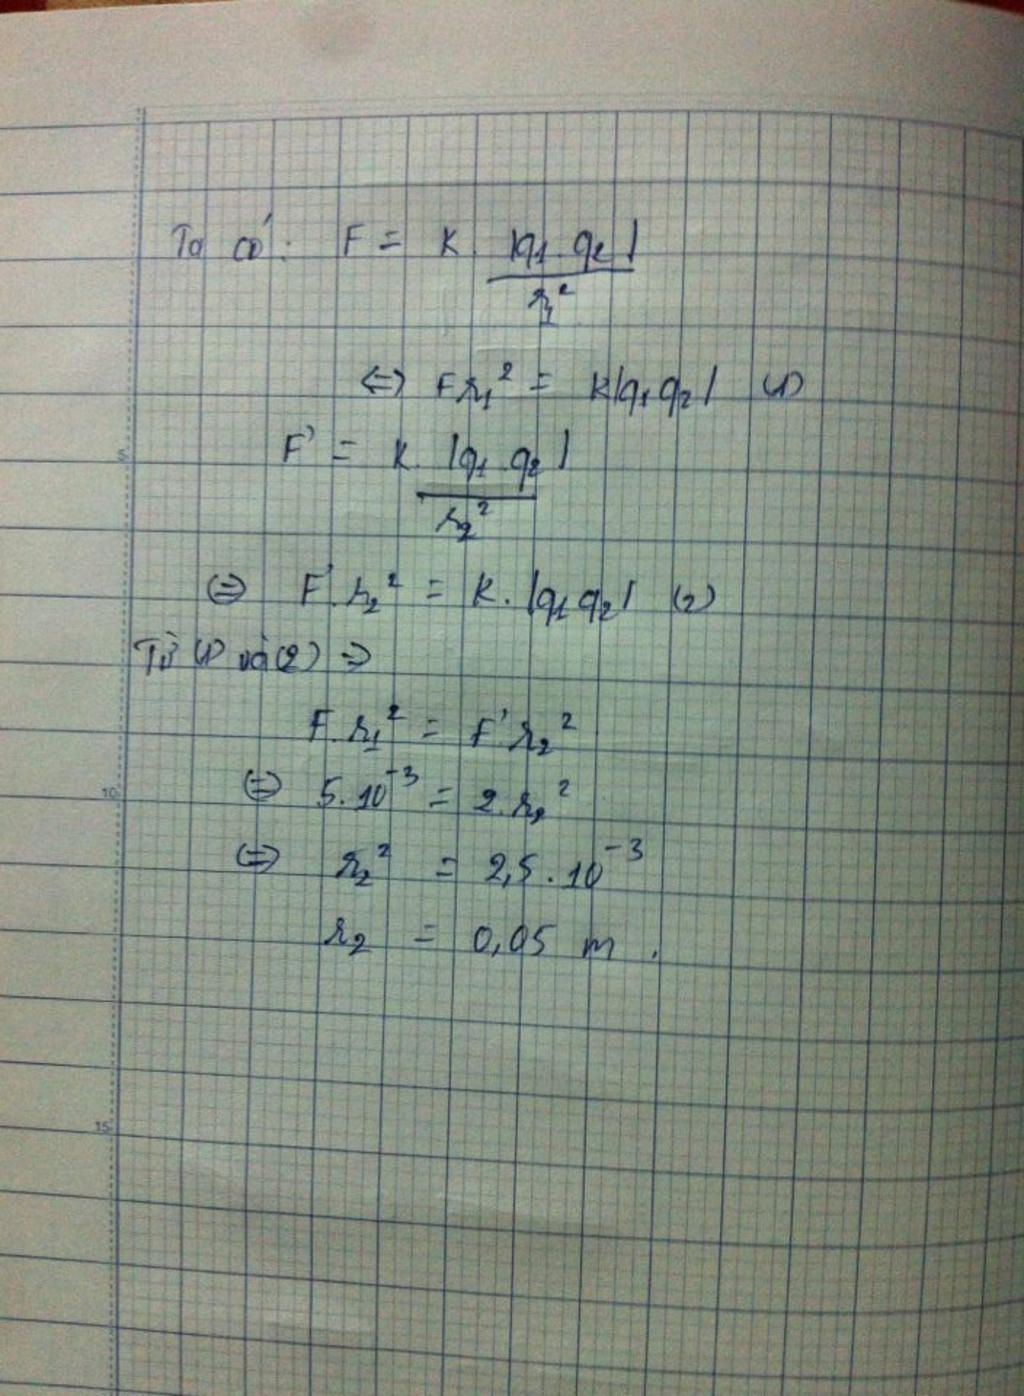 Ta có: F = K. |q1. q2|
r1²
<=> Fr1² = K|q1 q2| (1)
F' = K. |q1 q2|
r2²
<=> F'. r2² = K. |q1 q2| (2)
Từ (1) và (2) =>
F. r1² = F' r2²
<=> 5.10⁻³ = 2. r2²
<=> r2² = 2,5. 10⁻³
r2 = 0,05 m.
5
10
15